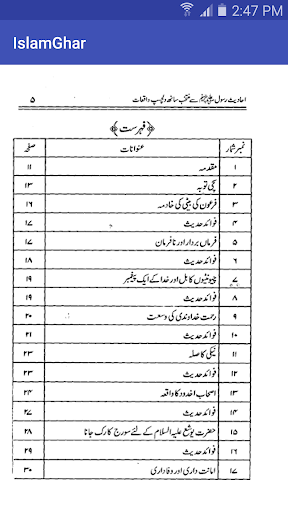 2:47 PM
IslamGhar
احادیث رسول ﷺ سے منتخب ساٹھ دلچسپ واقعات ۵
﴿فہرست﴾
نمبر شمار عنوانات صفحہ
۱ مقدمہ ۱۱
۲ سچی توبہ ۱۳
۳ فرعون کی بیٹی کی خادمہ ۱۶
۴ فوائد حدیث ۱۷
۵ فرماں بردار اور نافرمان ۱۷
۶ فوائد حدیث ۱۸
۷ چیونٹیوں کا بل اور خدا کے ایک پیغمبر ۱۹
۸ فوائد حدیث ۱۹
۹ رحمت خداوندی کی وسعت ۲۰
۱۰ فوائد حدیث ۲۱
۱۱ نیکی کا صلہ ۲۳
۱۲ فوائد حدیث ۲۳
۱۳ اصحاب اخدود کا واقعہ ۲۴
۱۴ فوائد حدیث ۲۷
۱۵ حضرت یوشع علیہ السلام کے لئے سورج کا رک جانا ۲۸
۱۶ فوائد حدیث ۲۹
۱۷ امانت داری اور وفاداری ۳۰